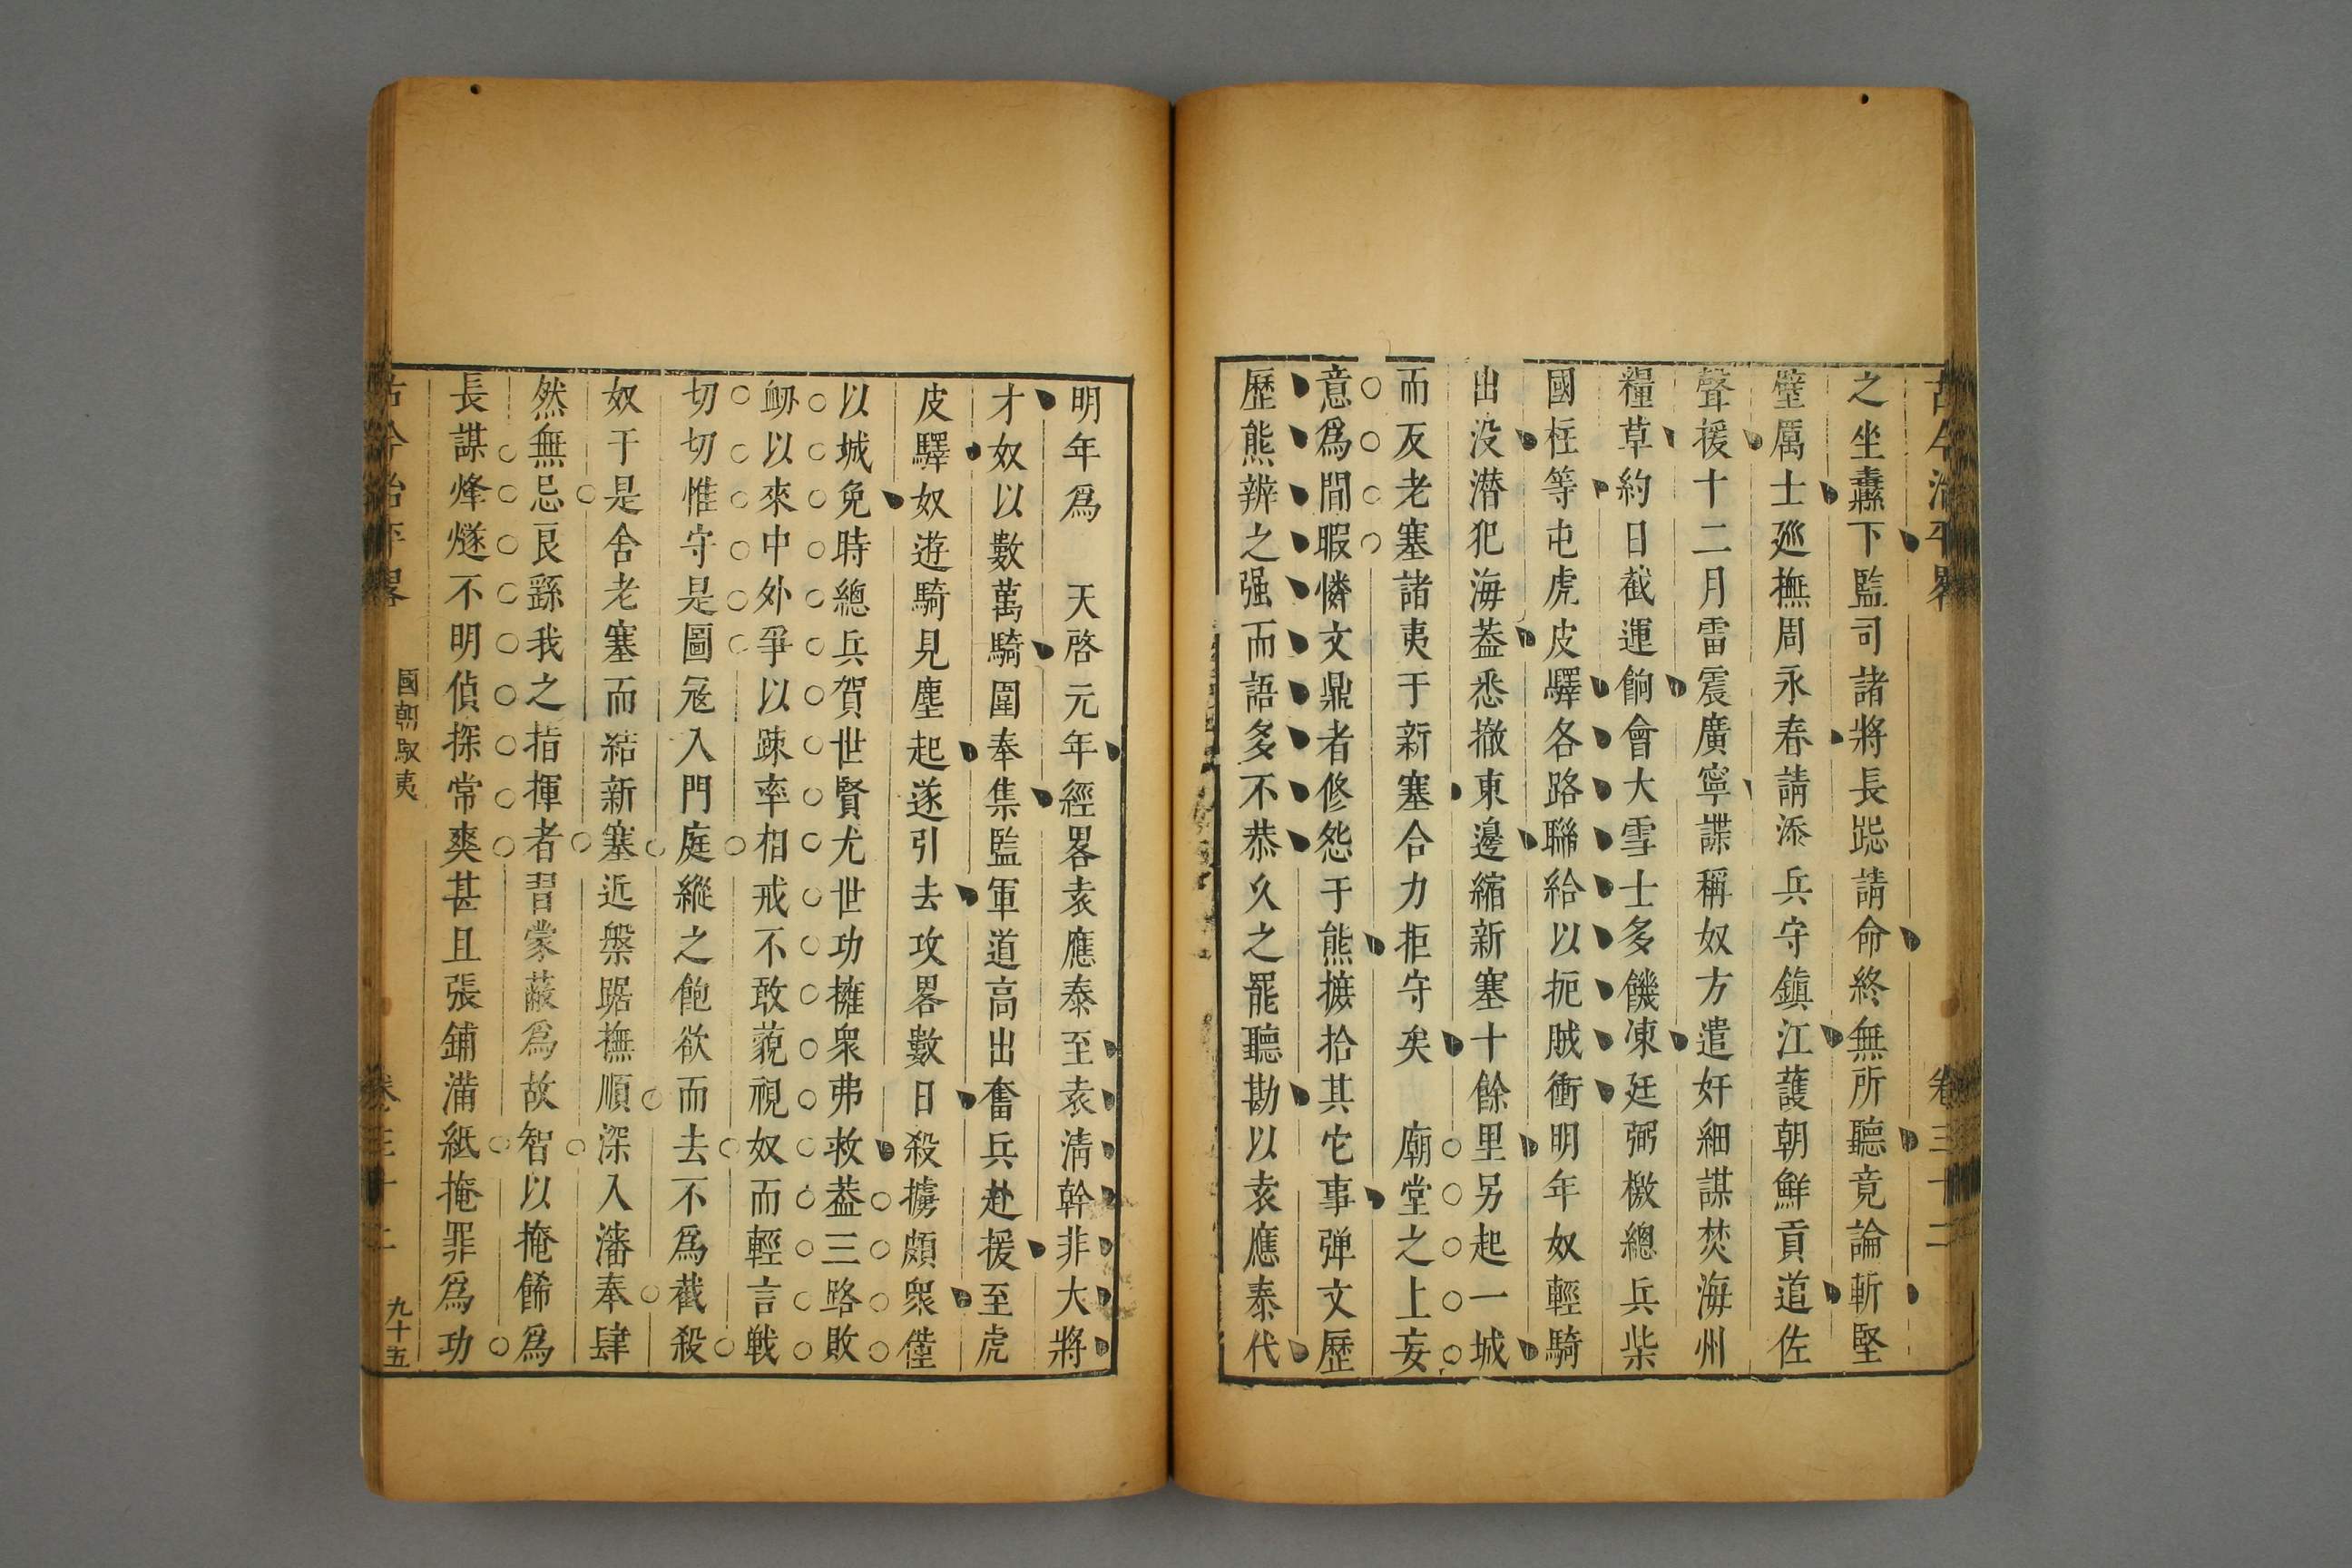 古今治平畧 卷三十二
之坐纛下監司諸將長跽請命終無所聽竟論斬堅
壁厲士廵撫周永春請添兵守鎮江護朝鮮貢道佐
聲援十二月雷震廣寧諜稱奴方遣奸細謀焚海州
糧草約日截運餉會大雪士多饑凍廷弼檄總兵柴
國柱等屯虎皮驛各路聯給以扼賊衝明年奴輕騎
出没潜犯海葢悉撤東邊縮新塞十餘里另起一城
而反老塞諸夷于新塞合力拒守矣 廟堂之上妄
意爲間暇憐文鼎者修怨于熊摭拾其它事弹文歷
歷熊辨之强而語多不恭久之罷聽勘以袁應泰代
明年爲 天啓元年經畧袁應泰至袁淸幹非大將
才奴以數萬騎圍奉集監軍道高出奮兵赴援至虎
皮驛奴遊騎見塵起遂引去攻畧數日殺擄頗衆僅
以城免時總兵賀世賢尤世功擁衆弗救葢三路敗
衂以來中外爭以踈率相戒不敢藐視奴而輕言戦
切切惟守是圖寇入門庭縱之飽欲而去不爲截殺
奴于是舍老塞而結新塞近槃踞撫順深入瀋奉肆
然無忌良繇我之指揮者習蒙蔽爲故智以掩餙爲
長謀烽燧不明偵探常爽甚且張鋪滿紙掩罪爲功
古今治平畧 國朝馭夷 卷三十二 九十五